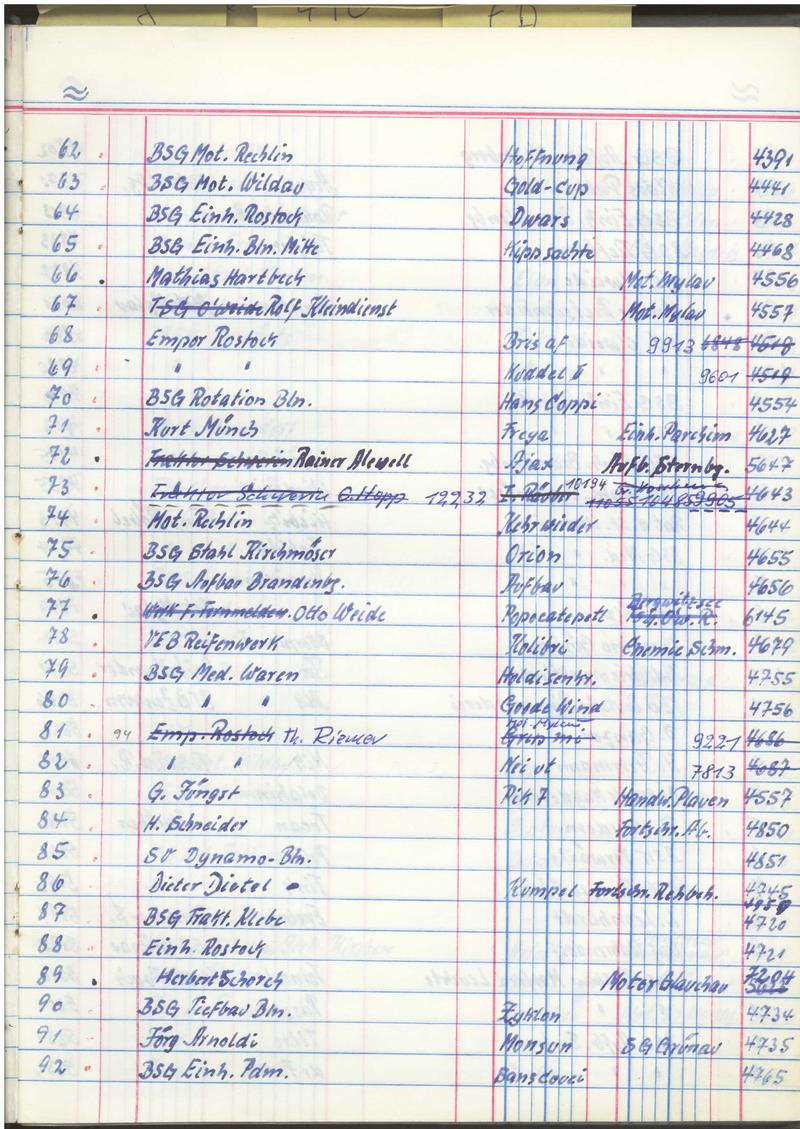 62 BSG Mot. Rechlin Hoffnung 4391
63 BSG Mot. Wildau Gold-Cup 4441
64 BSG Einh. Rostock Dwars 4428
65 BSG Einh. Bln. Mitte Kippsachte 4468
66 Mathias Hartbeck Mot. Mylau 4556
67 TSG O'weide Rolf Kleindienst Mot. Mylau 4557
68 Empor Rostock Bris af 9913 6848 4518
69 " " Kuddel II 9601 4519
70 BSG Rotation Bln. Hans Coppi 4554
71 Kurt Münch Freya Einh. Parchim 4627
72 Traktor Schwerin Rainer Alewell Ajax Aufb. Sternbg. 5647
73 Traktor Schwerin G. Hopp 12232 10194 11055 10485 9905 4643
74 Mot. Rechlin Kehrwieder 4644
75 BSG Stahl Kirchmöser Orion 4655
76 BSG Aufbau Brandenbg. Aufbau 4656
77 Otto Weide Popocatepetl Bergwitzsee 6145
78 VEB Reifenwerk Kolibri Chemie Schm. 4679
79 BSG Med. Waren Holdisenhr. 4755
80 " " Goode Wind 4756
81 94 Emp. Rostock th. Riemer Grip mi 9221 4686
82 " " Nei ut 7813 4687
83 G. Jüngst Pik 7 Handw. Plauen 4557
84 H. Schneider Fortschr. Ab. 4850
85 SV Dynamo-Bln. 4851
86 Dieter Dietel Kumpel Fortschr. Rehbch. 4745
87 BSG Trakt. Klebe 4720
88 Einh. Rostock 4721
89 Herbert Schorch Motor Glauchau 7204
90 BSG Tiefbau Bln. Zyklon 4734
91 Jörg Arnoldi Monsun SG Grünau 4735
92 BSG Einh. Pdm. Sanssouci 4765